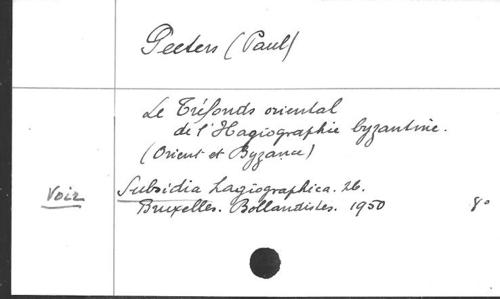 Peeters (Paul)
Le Tréfonds oriental
de l'Hagiographie byzantine.
(Orient et Byzance)
Voir Subsidia hagiographica. 26.
Bruxelles. Bollandistes. 1950 8º